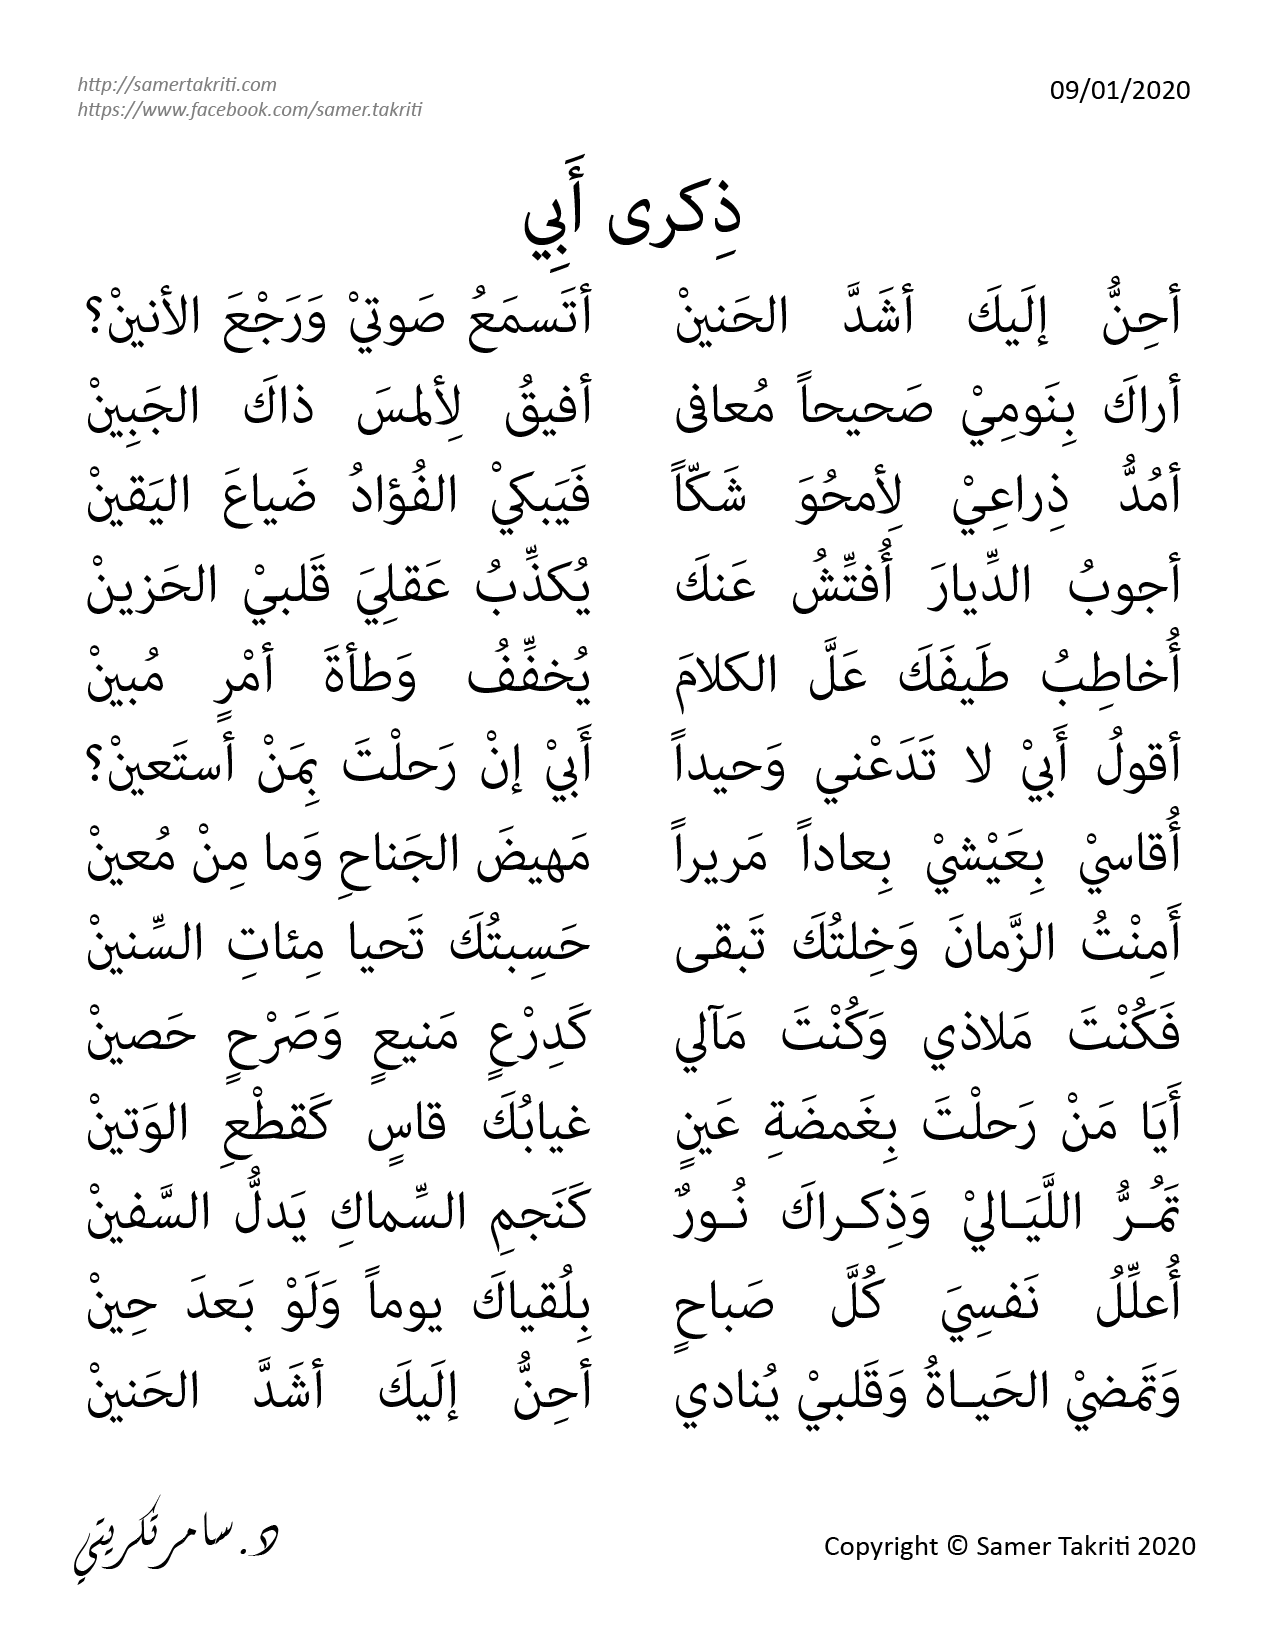 http://samertakriti.com
https://www.facebook.com/samer.takriti
09/01/2020
ذِكرى أَبِي
أحِنُّ إلَيكَ أشَدَّ الحَنينْ أتَسمَعُ صَوتيْ وَرَجْعَ الأنينْ؟
أراكَ بِنَومِيْ صَحيحاً مُعافى أفيقُ لِألمسَ ذاكَ الجَبِينْ
أمُدُّ ذِراعِيْ لِأمحُوَ شَكّاً فَيَبكيْ الفُؤادُ ضَياعَ اليَقينْ
أجوبُ الدِّيارَ أُفتِّشُ عَنكَ يُكذِّبُ عَقلِيَ قَلبيْ الحَزينْ
أُخاطِبُ طَيفَكَ عَلَّ الكلامَ يُخفِّفُ وَطأةَ أمْرٍ مُبينْ
أقولُ أَبيْ لا تَدَعْني وَحيداً أَبيْ إنْ رَحلْتَ بِمَنْ أستَعينْ؟
أُقاسيْ بِعَيْشيْ بِعاداً مَريراً مَهيضَ الجَناحِ وَما مِنْ مُعينْ
أَمِنْتُ الزَّمانَ وَخِلتُكَ تَبقى حَسِبتُكَ تَحيا مِئاتِ السِّنينْ
فَكُنْتَ مَلاذي وَكُنْتَ مَآلي كَدِرْعٍ مَنيعٍ وَصَرْحٍ حَصينْ
أَيَا مَنْ رَحلْتَ بِغَمضَةِ عَينٍ غيابُكَ قاسٍ كَقطْعِ الوَتينْ
تَمُـرُّ اللَّيَـاليْ وَذِكـراكَ نُـورٌ كَنَجمِ السِّماكِ يَدلُّ السَّفينْ
أُعلِّلُ نَفسِيَ كُلَّ صَباحٍ بِلُقياكَ يوماً وَلَوْ بَعدَ حِينْ
وَتَمضيْ الحَيـاةُ وَقَلبيْ يُنادي أحِنُّ إلَيكَ أشَدَّ الحَنينْ
د. سامر تكريتي
Copyright © Samer Takriti 2020